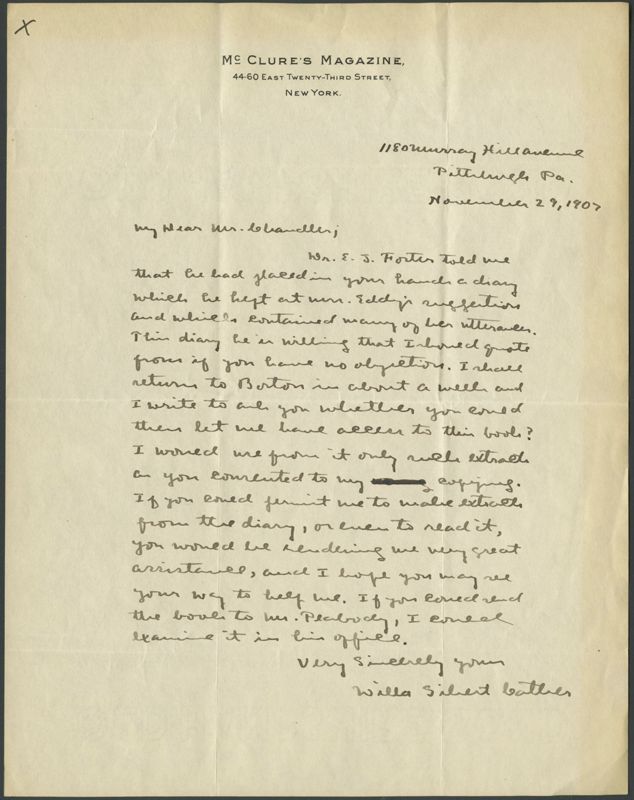 X
Mc CLURE'S MAGAZINE,
44-60 EAST TWENTY-THIRD STREET,
NEW YORK.
1180 Murray Hill Avenue
Pittsburgh Pa.
November 29, 1907
My Dear Mr. Chandler;
Dr. E. J. Foster told me
that he had placed in your hands a diary
which he kept at Mrs. Eddy's suggestion
and which contained many of her utterances.
This diary he is willing that I should quote
from if you have no objection. I shall
return to Boston in about a week and
I write to ask you whether you could
then let me have access to this book?
I would use from it only such extracts
as you consented to my copying.
If you could permit me to make extracts
from the diary, or even to read it,
you would be rendering me very great
assistance, and I hope you may see
your way to help me. If you could send
the book to Mr. Peabody, I could
examine it in his office.
Very Sincerely yours
Willa Sibert Cather